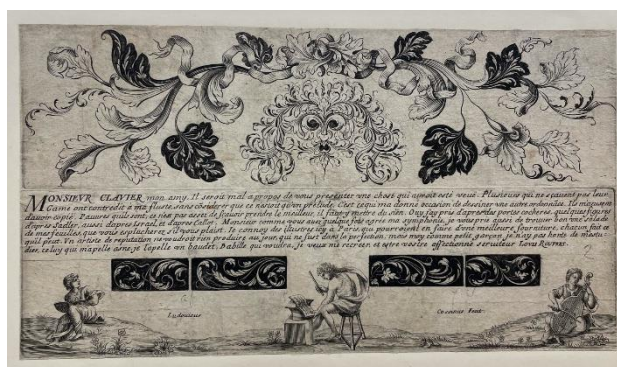 MONSIEVR CLAVIER mon amy. Il seroit mal a propos de vous presenter vne chose qui auroit esté veüe. Plusieurs qui ne sçauent pas leur
Game ont contredit a ma fluste, sans considerer que ce n'estoit qu'vn prélude. C'est ce qui m'a donné occasion de dessiner vne autre ordonnée. Ils m'acusent
d'auoir copié. Pauures qu'ils sont, ce n'est pas assez de sçauoir prendre le meilleur, il faut y mettre du sien. Ouy j'ay pris d'apres des portes cocheres, quelques figures
d'apres Sadler, aussi d'apres et d'autres Celles. Monsieur comme vous aues quelque fois agreé ma symphonie, je vous prie aussi de trouuer bon cette salade
de mes feuillas, que vous esplucherez s'il vous plaist. Ie connoy des illustres icy a Paris, qui pourroient en faire d'une meilleure fourniture, chacun fait ce
qu'il peut. Vn artiste de reputation ne voudroit rien produire au jour, qui ne fust dans la perfection, mais moy bonne petit garçon, je n'ay pas honte de m'estu-
dier, celuy qui m'apelle asne, je l'apelle vn baudet. Babille qui voudra, je veux me recreer et estre vostre affectionné seruiteur Louis Rouvier
Ludouicus
fecit